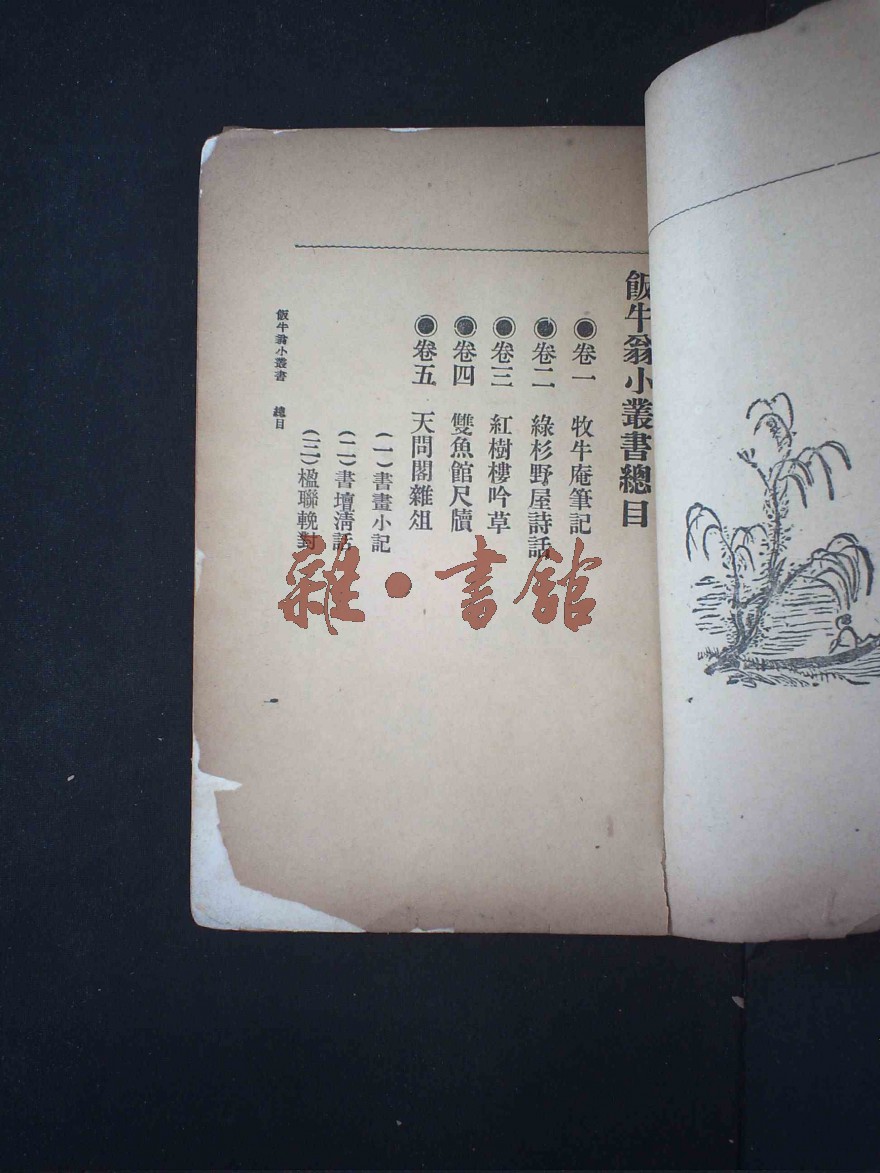 飯牛翁小叢書總目
●卷一 牧牛庵筆記
●卷二 綠杉野屋詩話
●卷三 紅樹樓吟草
●卷四 雙魚館尺牘
●卷五 天問閣雜俎
(一)書畫小記
(二)書壇淸話
(三)楹聯輓對
飯牛翁小叢書 總目
雜·書館